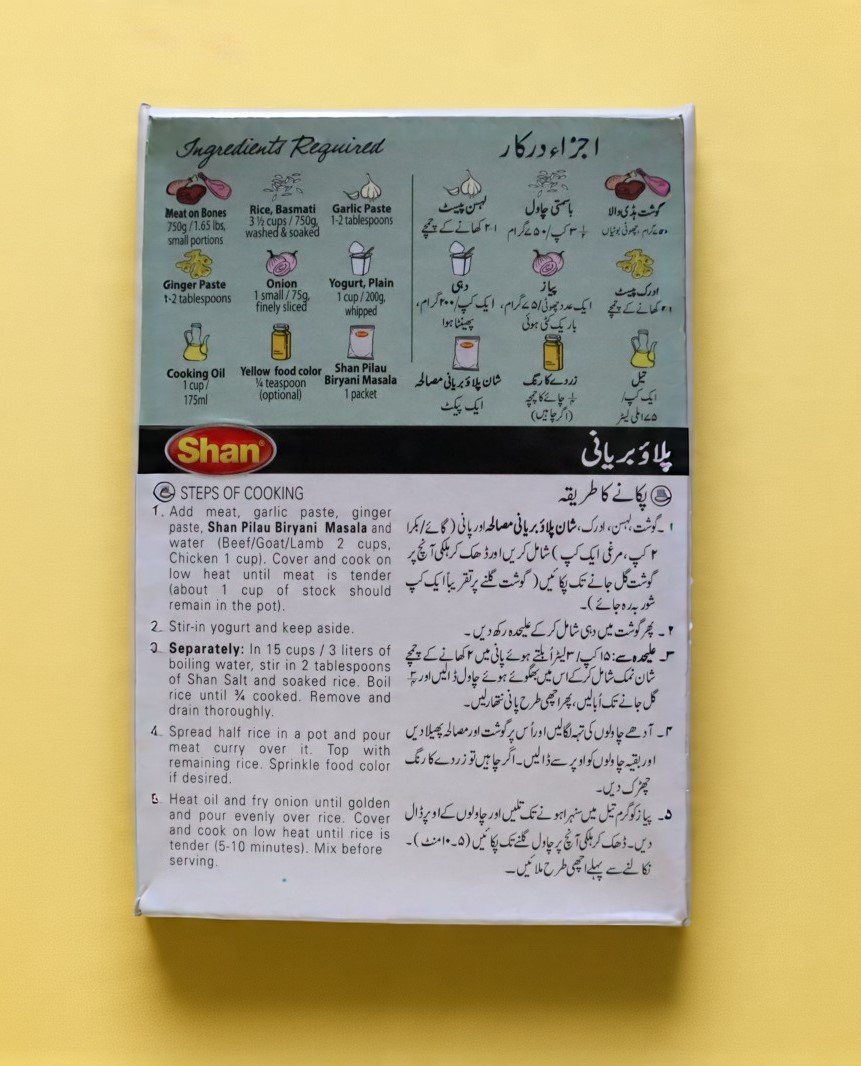 Ingredients Required
Meat on Bones
750g/1.65 lbs,
small portions
Rice, Basmati
3 ½ cups / 750g,
washed & soaked
Garlic Paste
1-2 tablespoons
Ginger Paste
1-2 tablespoons
Onion
1 small / 75g,
finely sliced
Yogurt, Plain
1 cup / 200g,
whipped
Cooking Oil
1 cup /
175ml
Yellow food color
¼ teaspoon
(optional)
Shan Pilau
Biryani Masala
1 packet
اجزاء درکار
گوشت ہڈی والا
۷۵۰گرام، چھوٹی بوٹیاں
باسمتی چاول
۳ ½ کپ/۷۵۰گرام
لہسن پیسٹ
۱-۲ کھانے کے چمچے
ادرک پیسٹ
۱-۲ کھانے کے چمچے
پیاز
ایک عدد چھوٹی/۷۵گرام،
باریک کٹی ہوئی
دہی
ایک کپ/۲۰۰گرام،
پھینٹا ہوا
تیل
ایک کپ/
۱۷۵ملی لیٹر
زردے کا رنگ
¼ چائے کا چمچہ
(اگر چاہیں)
شان پلاؤ بریانی مصالحہ
ایک پیکٹ
Shan
پلاؤ بریانی
STEPS OF COOKING
1. Add meat, garlic paste, ginger
paste, Shan Pilau Biryani Masala and
water (Beef/Goat/Lamb 2 cups,
Chicken 1 cup). Cover and cook on
low heat until meat is tender
(about 1 cup of stock should
remain in the pot).
2. Stir-in yogurt and keep aside.
3. Separately: In 15 cups / 3 liters of
boiling water, stir in 2 tablespoons
of Shan Salt and soaked rice. Boil
rice until ¾ cooked. Remove and
drain thoroughly.
4. Spread half rice in a pot and pour
meat curry over it. Top with
remaining rice. Sprinkle food color
if desired.
5. Heat oil and fry onion until golden
and pour evenly over rice. Cover
and cook on low heat until rice is
tender (5-10 minutes). Mix before
serving.
پکانے کا طریقہ
۱ ۔گوشت، لہسن، ادرک، شان پلاؤ بریانی مصالحہ اور پانی (گائے/بکرا
۲ کپ، مرغی ایک کپ) شامل کریں اور ڈھک کر ہلکی آنچ پر
گوشت گل جانے تک پکائیں (گوشت گلنے پر تقریباً ایک کپ
شوربہ رہ جائے)۔
۲ ۔ پھر گوشت میں دہی شامل کرکے علیحدہ رکھ دیں ۔
۳۔ علیحدہ سے: ۱۵ کپ/۳لیٹر اُبلتے ہوئے پانی میں ۲ کھانے کے چمچے
شان نمک شامل کرکے اس میں بھگوئے ہوئے چاول ڈالیں اور ¾
گل جانے تک اُبالیں، پھر اچھی طرح پانی نتھار لیں۔
۴ ۔ آدھے چاولوں کی تہہ لگالیں اور اُس پر گوشت اور مصالحہ پھیلا دیں
اور بقیہ چاولوں کو اوپر سے ڈالیں۔ اگر چاہیں تو زردے کا رنگ
چھڑک دیں۔
۵۔ پیاز کو گرم تیل میں سنہرا ہونے تک تلیں اور چاولوں کے اوپر ڈال
دیں۔ ڈھک کر ہلکی آنچ پر چاول گلنے تک پکائیں (۵۔۱۰ منٹ)۔
نکالنے سے پہلے اچھی طرح ملائیں۔